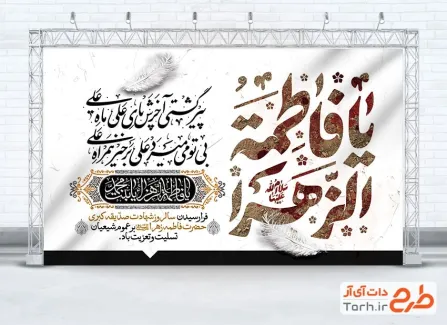 یا فاطمة
الزهرا
سلام الله علیها
پیر گشتی آخرش پای علی ماه علی
بی تو می میرد علی برخیز همراه علی
یا فاطمة الزهرا یا بنت محمد
فرا رسیدن سالروز شهادت صدیقه کبری
حضرت فاطمه زهرا بر عموم شیعیان
تسلیت و تعزیت باد.
طرح
دات آی آر
Tarh.ir